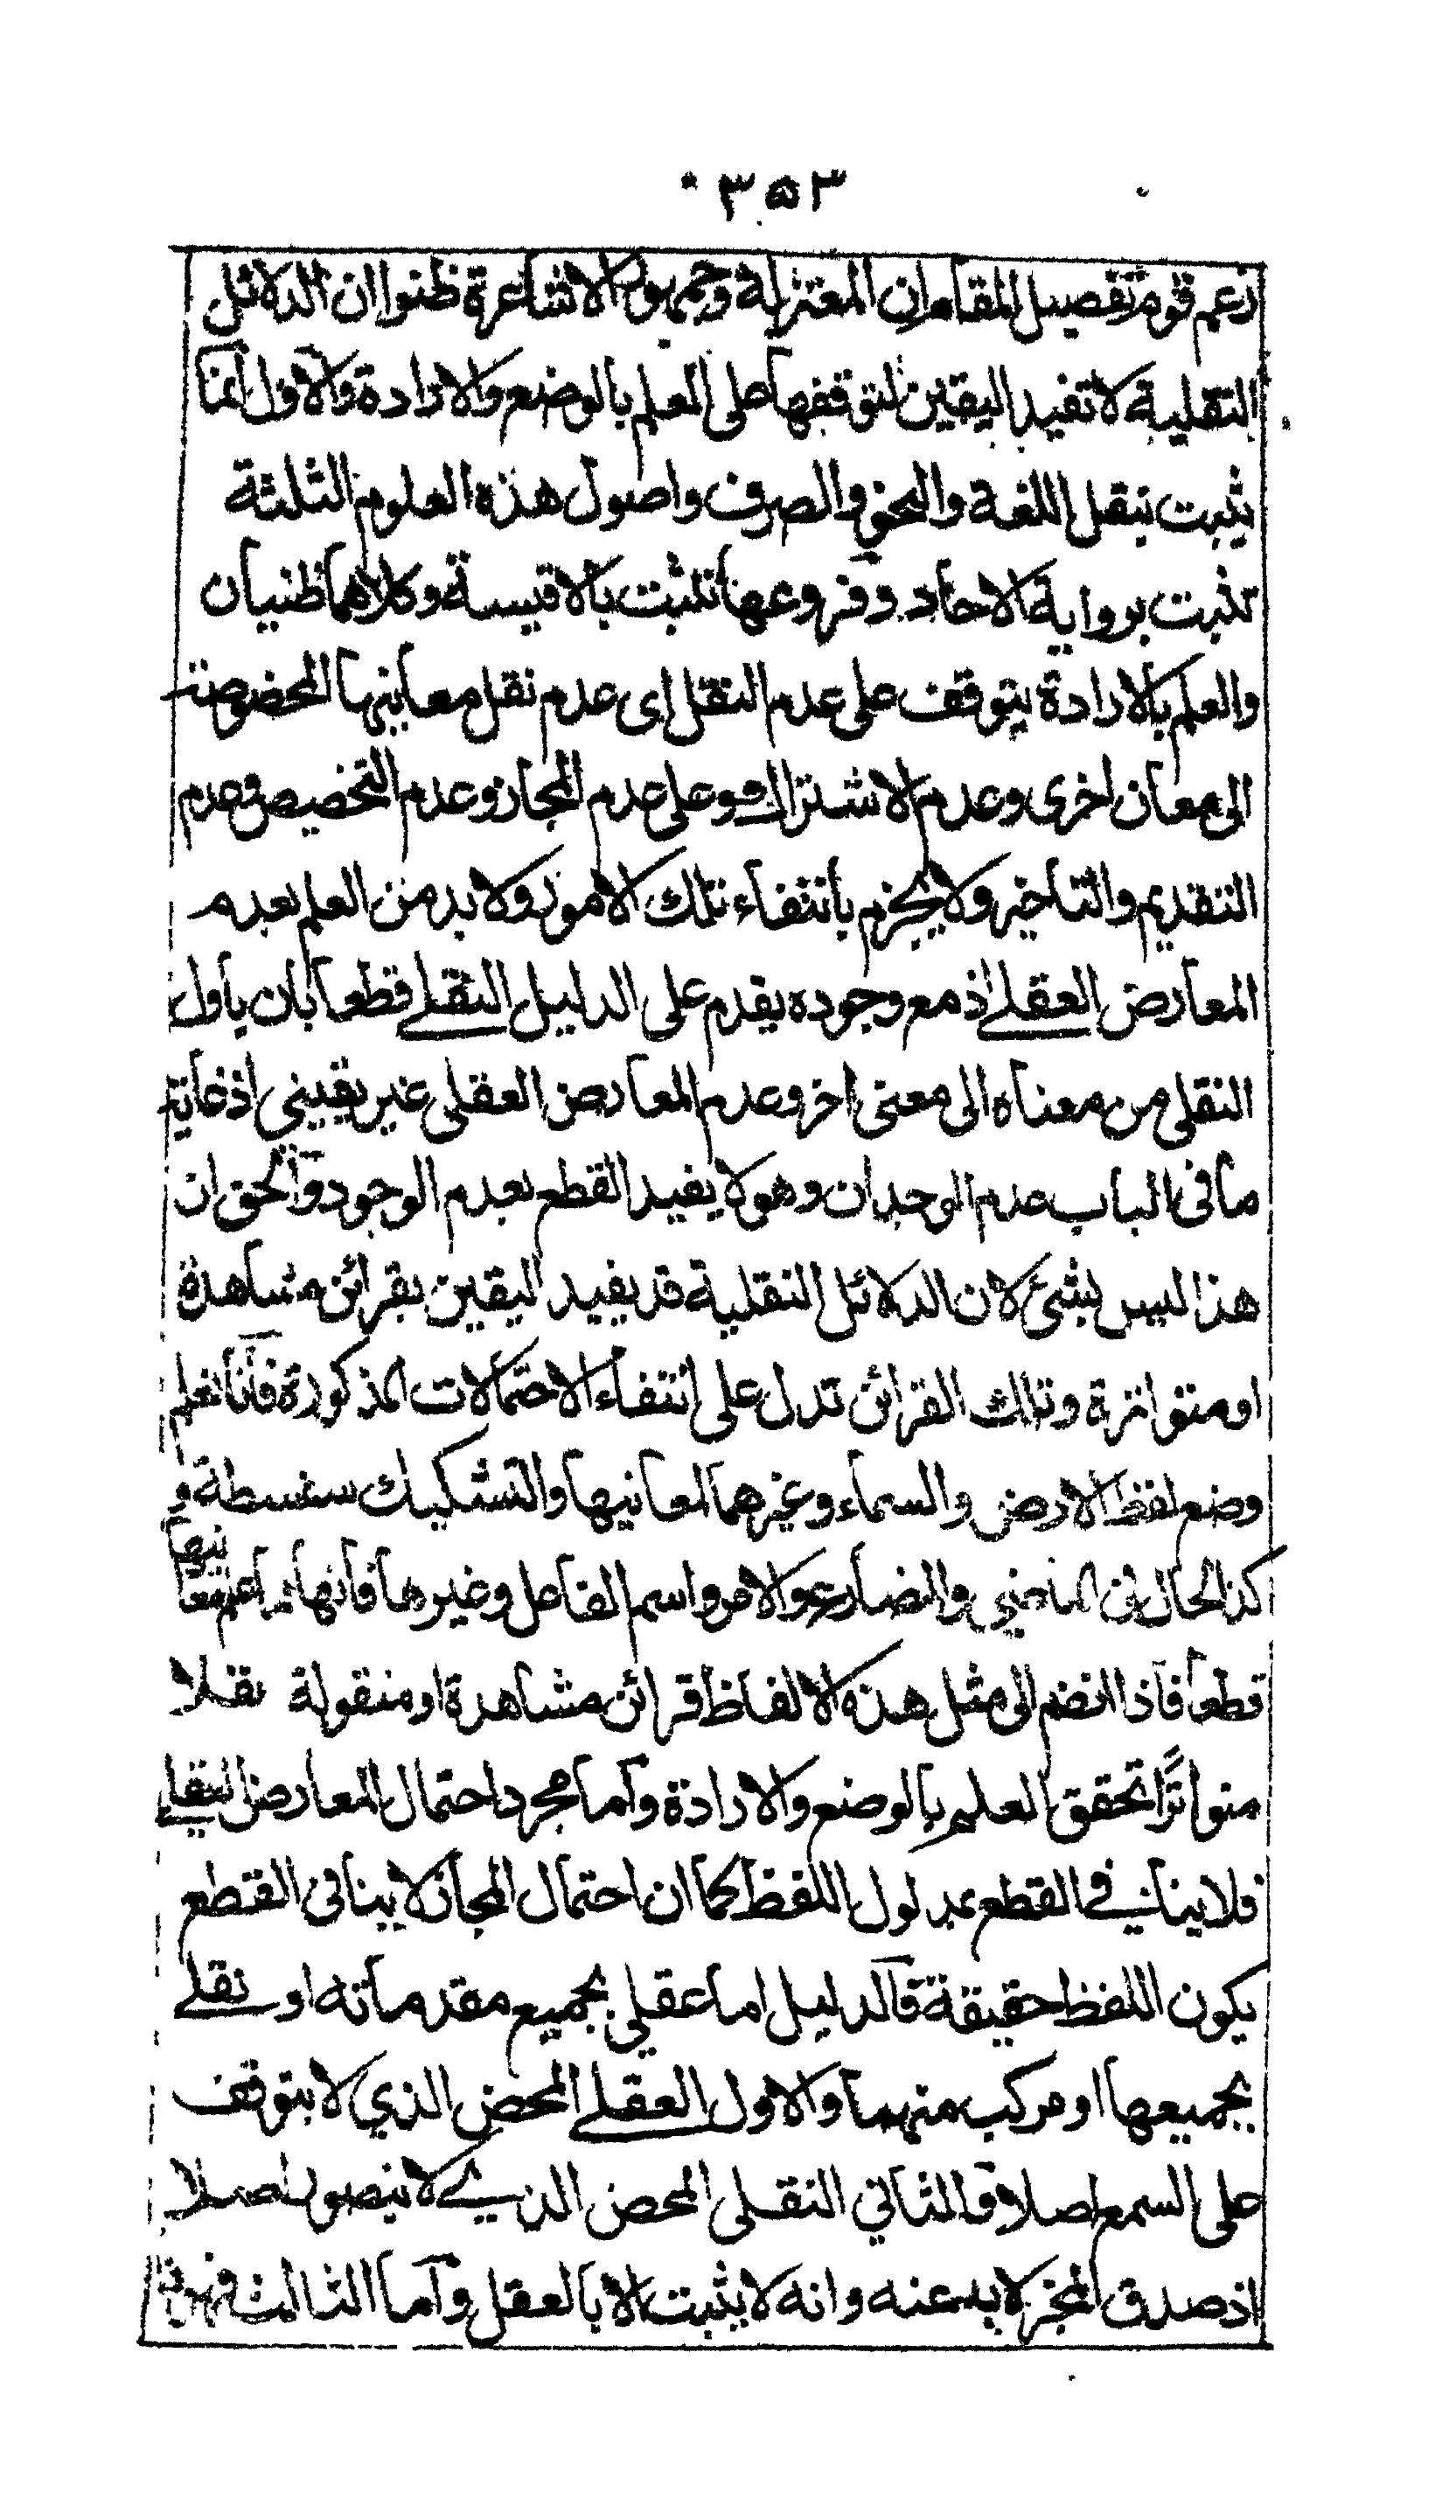 ٣٥٣
زعم قوم تفصيل المقام ان المعتزلة وجمهور الاشاعرة ظنوا ان الدلائل
النقلية لا تفيد اليقين لتوقفها على العلم بالوضع والارادة والاول انما
يثبت بنقل اللغة والنحو والصرف واصول هذه العلوم الثلثة
تثبت برواية الاحاد وفروعها تثبت بالاقيسة وكلاهما ظنيان
والعلم بالارادة يتوقف على عدم النقل اى عدم نقل معاينها المخصوصة
الى معان اخرى وعدم الاشتراك وعلى عدم المجاز وعدم التخصيص وعدم
التقديم والتاخير ولا يجزم بانتفاء تلك الامور ولا بد من العلم بعدم
المعارض العقلے اذ مع وجوده يقدم على الدليل النقلے قطعا بان ياول
النقلى من معناه الى معنى اخر وعدم المعارض العقلى غير يقينى اذ غاية
ما فى الباب عدم الوجدان وهو لا يفيد القطع بعدم الوجود والحق ان
هذا ليس بشئ لان الدلائل النقلية قد يفيد اليقين بقرائن مشاهدة
او متواترة وتلك القرائن تدل على انتفاء الاحتمالات المذكورة فانا نعلم
وضع لفظ الارض والسماء وغيرهما لمعانيها والتشكيك سفسطة و
كذا الحال فى الماضى والمضارع والامر واسم الفاعل وغيرها فانها مما علم معانيها
قطعا فاذا انضم الى مثل هذه الالفاظ قرائن مشاهدة او منقولة نقلا
متواترًا تحقق العلم بالوضع والارادة واما مجرد احتمال المعارض النقلے
فلا ينافے القطع بمدلول اللفظ كما ان احتمال المجاز لا ينافى القطع
بكون اللفظ حقيقة فالدليل اما عقلي بجميع مقدماته او نقلے
بجميعها او مركب منهما والاول العقلے المحض الذي لا يتوقف
على السمع اصلا والثاني النقلى المحض الذے لا يتصور اصلا
اذ صدق المخبر لا بد عنه وانه لا يثبت الا بالعقل واما الثالث